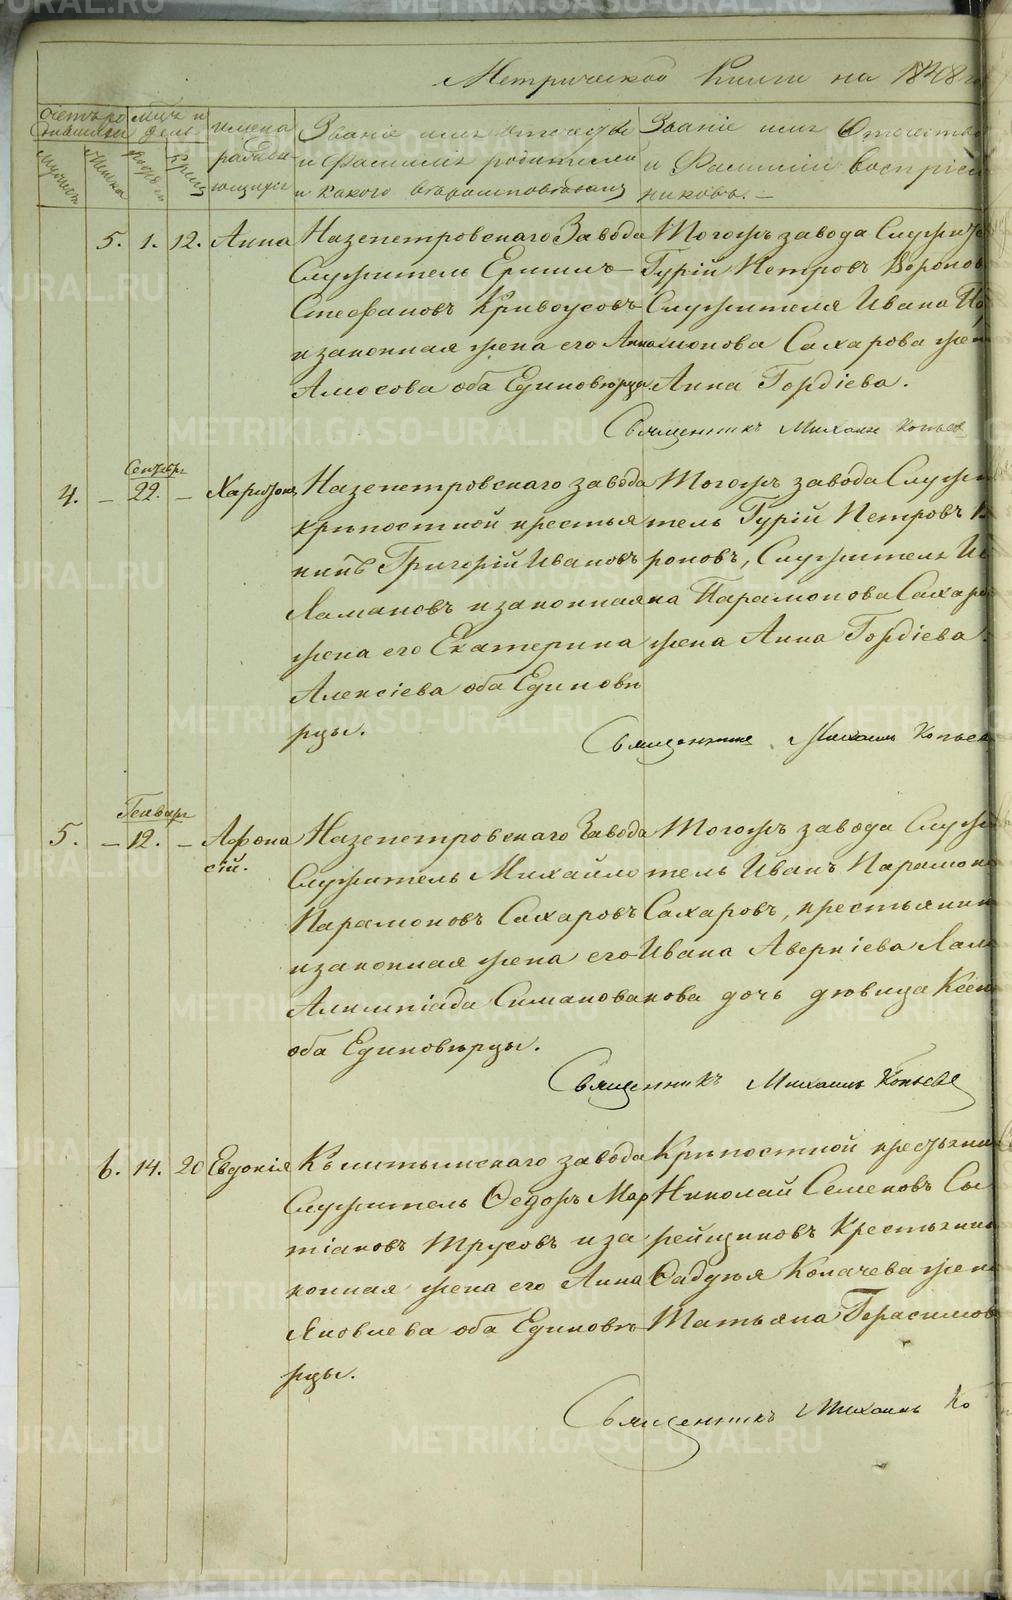 Метрической Книги на 1848 го
Счетъ ро
дившихся
Мцъ и
день
имена
раждаю
ющихся
Званіе имя отчество
и Фамилія родителей
и какого вѣроисповѣданія
Званіе имя Отчество
и Фамилія воспріем
никовъ. —
5. 1. 12. Анна
Назепетровскаго Завода
Служитель Ермилъ
Стефановъ Кривоусовъ
и законная жена его Анна
Амосова оба Единовѣрца
Тогожъ завода Служите
Гурій Петровъ Воронов
Служителя Ивана Па
монова Сахарова жен
Анна Гордіева.
Священникъ Михаилъ Копьев
Сентябрь
4. — 22. — Харитонъ
Назепетровскаго завода
крѣпостной крестья
нинъ Григорій Ивановъ
Ламановъ и законная
жена его Екатерина
Алексіева оба Единовѣ
рцы.
Тогожъ завода Служи
тель Гурій Петровъ В
роновъ, Служителя Ив
на Парамонова Сахаро
жена Анна Гордіева.
Священникъ Михаилъ Копьев
Генварь
5. — 12. — Афона
сій.
Назепетровскаго Завода
Служитель Михайло
Парамоновъ Сахаровъ
и законная жена его
Алимпіада Симанова
оба Единовѣрцы.
Тогожъ завода Служи
тель Иванъ Парамоно
Сахаровъ, крестьянин
Ивана Аверкіева Лам
нова дочь дѣвица Ксен
Священникъ Михаилъ Копьевъ
6. 14. 20 Евдокія
Кыштымскаго завода
Служитель Ѳедоръ Мар
тіановъ Трусовъ и за
конная жена его Анна
Яковлева оба Единовѣ
рцы.
Крѣпостной крестьянин
Николай Семеновъ Сы
рейщиковъ Крестьянин
Ѳадѣя Копачева жен
Татьяна Герасимов
Священникъ Михаилъ Ко
METRIKI.GASO-URAL.RU